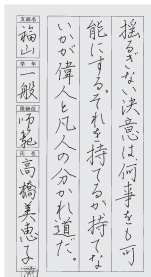 揺るぎない決意は、何事をも可
能にする。それを持てるか持てな
いかが偉人と凡人の分かれ道だ。
支部名
福山
学年
一般
師範
氏名
高橋美恵子